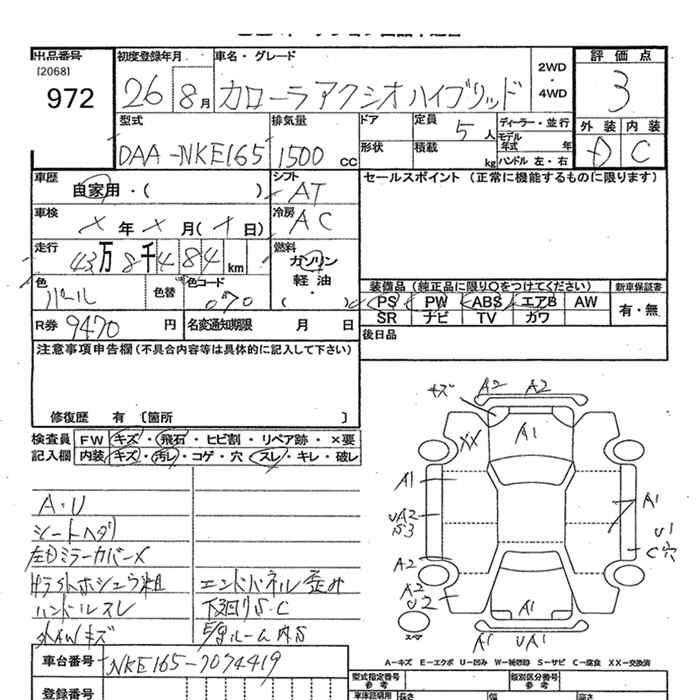 出品番号
[2068]
972
初度登録年月
26 8月
車名・グレード
カローラアクシオハイブリッド
2WD
・
4WD
評価点
3
型式
DAA-NKE165
排気量
1500 cc
ドア
定員
5人
形状
積載
kg
ディーラー・並行
モデル
年式 年
ハンドル 左・右
外装 内装
D C
車歴
自家用・( )
シフト
AT
セールスポイント (正常に機能するものに限ります)
車検
X年X月(X日)
冷房
AC
走行
43万8千484km
燃料
ガソリン
軽油
・
( )
色
パール
色替
色コード
070
装備品 (純正品に限り〇をつけてください)
新車保証書
PS PW ABS エアB AW
SR ナビ TV カワ
有・無
R券 9470 円
名変通知期限 月 日
後日品
注意事項申告欄 (不具合内容等は具体的に記入して下さい)
修復歴 有 〔箇所 〕
検査員
記入欄
FW キズ・飛石・ヒビ割・リペア跡・×要
内装 キズ・汚レ・コゲ・穴・スレ・キレ・破レ
A・U
シートヘタリ
左ドミラーカバーX
ハンドルスレ
エンドパネル歪み
下廻りS.C
外AWキズ
車台番号 NKE165-7074419
登録番号
キズ A2 A2
A1
XX
A1
UA2
S3
A2
A2
U2
A1
U1
C穴
A1
スペア
A1 UA1
A-キズ E-エクボ U-凹み W-補修跡 S-サビ C-腐食 XX-交換済
型式指定番号
参考
類別区分番号
参考
車体証明用
参考
長さ 幅 高さ